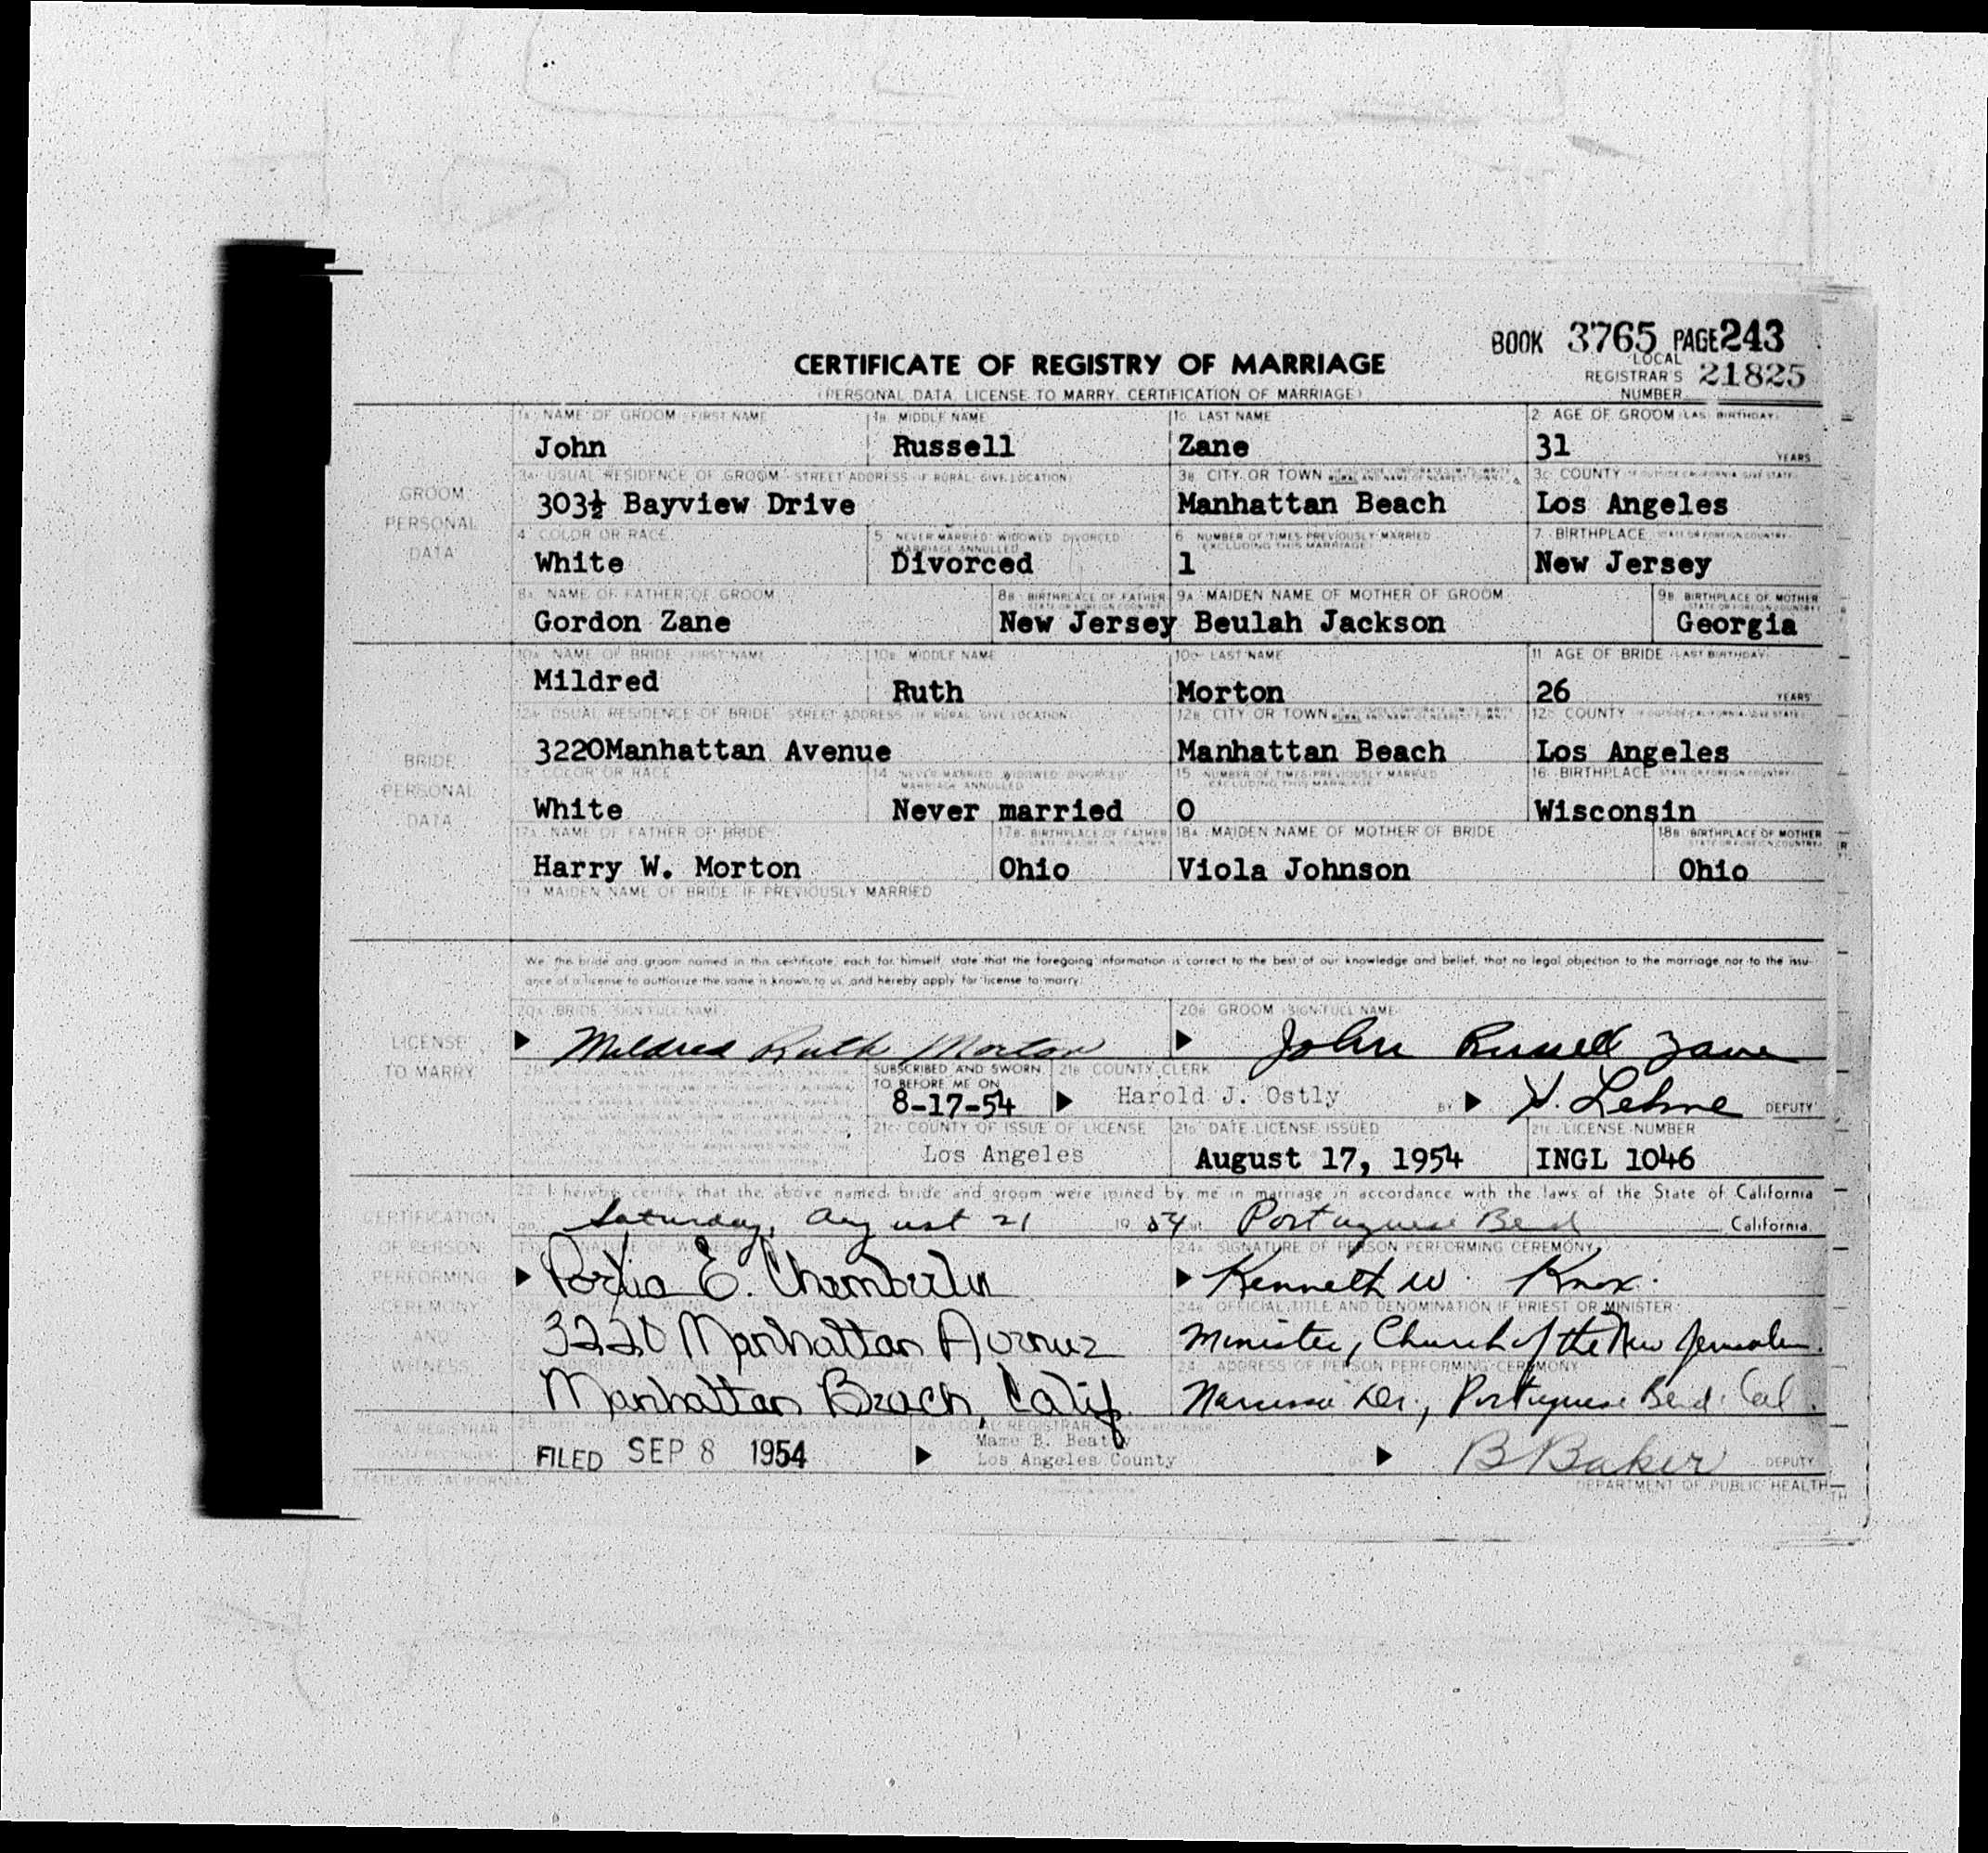 BOOK 3765 PAGE 243
CERTIFICATE OF REGISTRY OF MARRIAGE
LOCAL REGISTRAR'S NUMBER 21825
(PERSONAL DATA, LICENSE TO MARRY, CERTIFICATION OF MARRIAGE)
GROOM PERSONAL DATA
1A. NAME OF GROOM—FIRST NAME 1B. MIDDLE NAME 1C. LAST NAME 2. AGE OF GROOM (LAST BIRTHDAY)
John Russell Zane 31 YEARS
3A. USUAL RESIDENCE OF GROOM—STREET ADDRESS (IF RURAL, GIVE LOCATION) 3B. CITY OR TOWN 3C. COUNTY
303½ Bayview Drive Manhattan Beach Los Angeles
4. COLOR OR RACE 5. NEVER MARRIED, WIDOWED, DIVORCED, MARRIAGE ANNULLED 6. NUMBER OF TIMES PREVIOUSLY MARRIED (EXCLUDING THIS MARRIAGE) 7. BIRTHPLACE (STATE OR FOREIGN COUNTRY)
White Divorced 1 New Jersey
8A. NAME OF FATHER OF GROOM 8B. BIRTHPLACE OF FATHER (STATE OR FOREIGN COUNTRY) 9A. MAIDEN NAME OF MOTHER OF GROOM 9B. BIRTHPLACE OF MOTHER (STATE OR FOREIGN COUNTRY)
Gordon Zane New Jersey Beulah Jackson Georgia
BRIDE PERSONAL DATA
10A. NAME OF BRIDE—FIRST NAME 10B. MIDDLE NAME 10C. LAST NAME 11. AGE OF BRIDE (LAST BIRTHDAY)
Mildred Ruth Morton 26 YEARS
12A. USUAL RESIDENCE OF BRIDE—STREET ADDRESS (IF RURAL, GIVE LOCATION) 12B. CITY OR TOWN 12C. COUNTY
3220Manhattan Avenue Manhattan Beach Los Angeles
13. COLOR OR RACE 14. NEVER MARRIED, WIDOWED, DIVORCED, MARRIAGE ANNULLED 15. NUMBER OF TIMES PREVIOUSLY MARRIED (EXCLUDING THIS MARRIAGE) 16. BIRTHPLACE (STATE OR FOREIGN COUNTRY)
White Never married 0 Wisconsin
17A. NAME OF FATHER OF BRIDE 17B. BIRTHPLACE OF FATHER (STATE OR FOREIGN COUNTRY) 18A. MAIDEN NAME OF MOTHER OF BRIDE 18B. BIRTHPLACE OF MOTHER (STATE OR FOREIGN COUNTRY)
Harry W. Morton Ohio Viola Johnson Ohio
19. MAIDEN NAME OF BRIDE IF PREVIOUSLY MARRIED
We, the bride and groom named in this certificate, each for himself, state that the foregoing information is correct to the best of our knowledge and belief, that no legal objection to the marriage nor to the issu-
ance of a license to authorize the same is known to us, and hereby apply for license to marry.
LICENSE TO MARRY
20A. BRIDE (SIGN FULL NAME) 20B. GROOM (SIGN FULL NAME)
Mildred Ruth Morton John Russell Zane
SUBSCRIBED AND SWORN TO BEFORE ME ON 21B. COUNTY CLERK
8-17-54 Harold J. Ostly BY H. Lehne DEPUTY
21C. COUNTY OF ISSUE OF LICENSE 21D. DATE LICENSE ISSUED 21E. LICENSE NUMBER
Los Angeles August 17, 1954 INGL 1046
22. I hereby certify that the above named bride and groom were joined by me in marriage in accordance with the laws of the State of California
CERTIFICATION OF PERSON PERFORMING CEREMONY AND WITNESS
on Saturday, August 21 1954 at Portuguese Bend California
23. SIGNATURE OF WITNESS 24A. SIGNATURE OF PERSON PERFORMING CEREMONY
Portia E. Chamberlin Kenneth W. Knox.
24B. OFFICIAL TITLE AND DENOMINATION IF PRIEST OR MINISTER
3220 Manhattan Avenue Minister, Church of the New Jerusalem.
24C. ADDRESS OF PERSON PERFORMING CEREMONY
Manhattan Beach, Calif. Narcissa Dr., Portuguese Bend Cal.
LOCAL REGISTRAR
FILED SEP 8 1954 Mame B. Beatty BY B Baker DEPUTY
Los Angeles County
STATE OF CALIFORNIA DEPARTMENT OF PUBLIC HEALTH